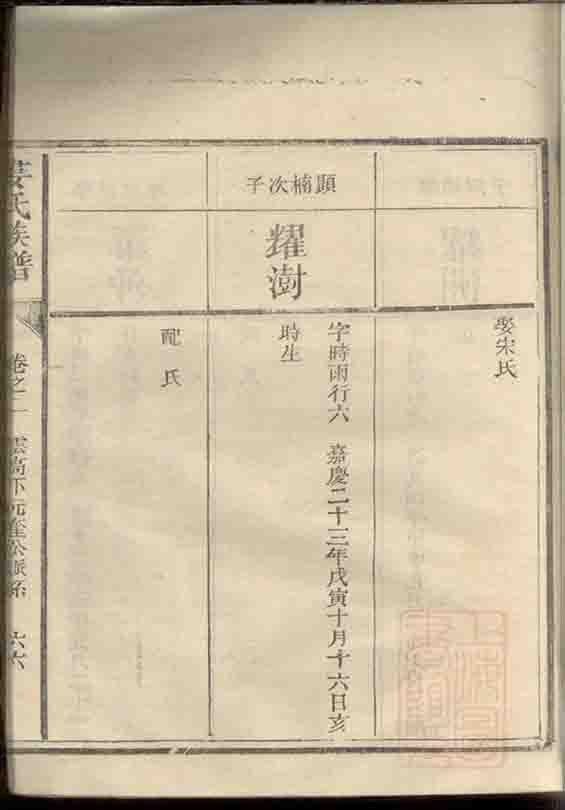 娶宋氏
顯楠次子
耀澍
字時雨行六　嘉慶二十三年戊寅十月十六日亥
時生
配　氏
姜氏族譜
卷之二　雲高下元奎公派系　六六
上海圖書館藏